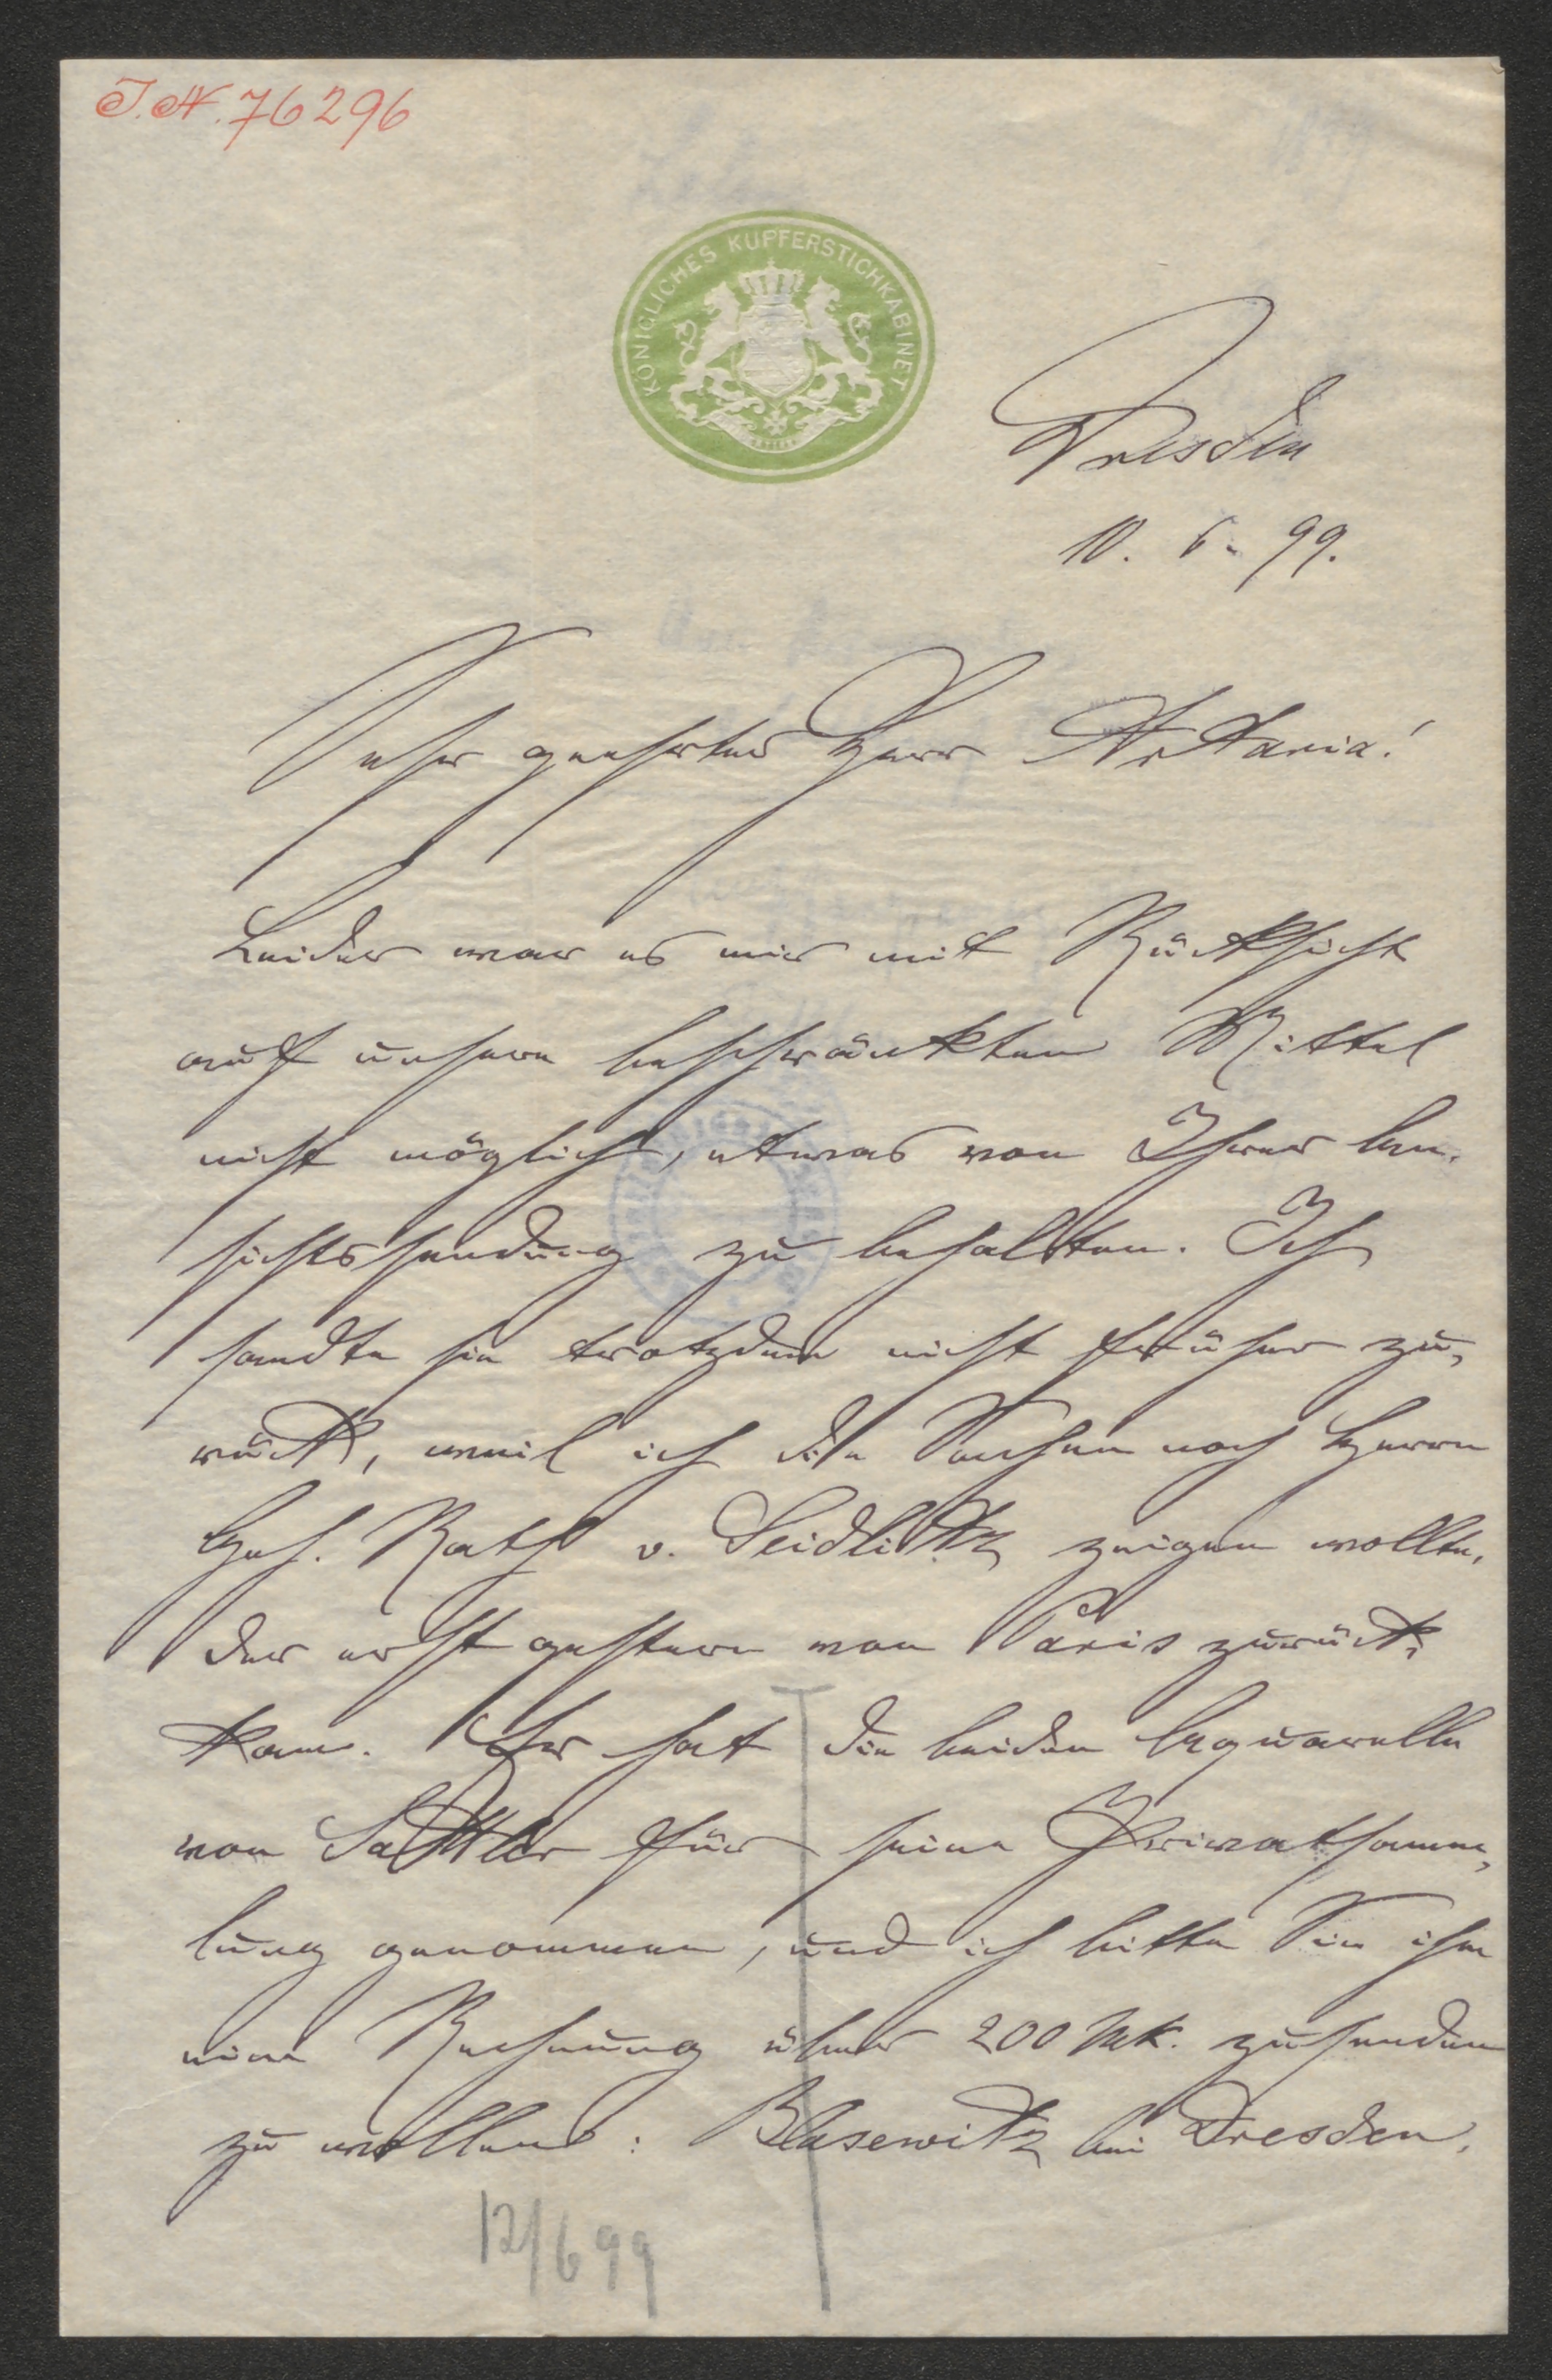 J.N. 76296
KÖNIGLICHES KUPFERSTICHKABINET
Dresden
10. 6. 99.
Sehr geehrter Herr Artaria!
Leider war es mir mit Rücksicht
auf unsere beschränkten Mittel
nicht möglich, etwas von Ihrer An-
sichtssendung zu behalten. Ich
sandte sie trotzdem nicht früher zu-
rück, weil ich die Sachen noch Herrn
Geh. Rath v. Seidlitz zeigen wollte,
der erst gestern von Paris zurück-
kam. Er hat die beiden Aquarelle
von Sattler für seine Privatsamm-
lung genommen, und ich bitte Sie ihm
eine Rechnung über 200 Mk. zusenden
zu wollen: Blasewitz bei Dresden,
12/6 99